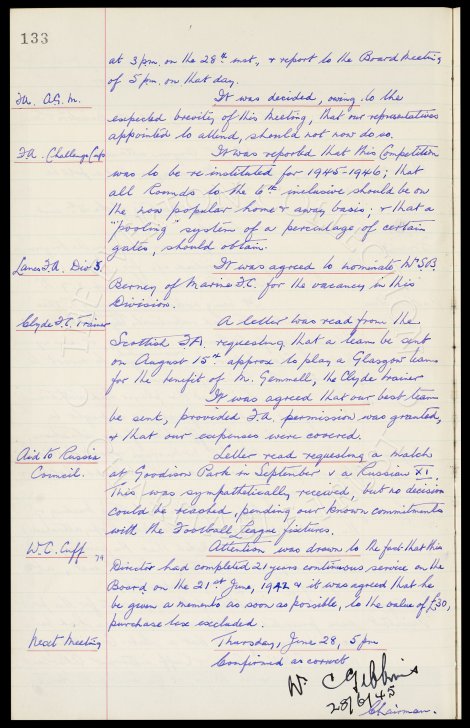 133
at 3 pm. on the 28th inst, & report to the Board Meeting
of 5 pm. on that day.
F.A. A.G.M.
It was decided, owing to the
expected brevity of this Meeting, that our representatives
appointed to attend, should not now do so.
F.A. Challenge Cup
It was reported that this Competition
was to be re-instituted for 1945-1946; that
all Rounds to the 6th inclusive should be on
the now popular home & away basis; & that a
"pooling" system of a percentage of certain
gates, should obtain.
Lancs F.A. Div 3.
It was agreed to nominate Mr S.B.
Berney of Marine F.C. for the vacancy in this
Division.
Clyde F.C. Trainer
A letter was read from the
Scottish F.A. requesting that a team be sent
on August 15th approx to play a Glasgow team
for the benefit of M. Gemmell, the Clyde trainer
It was agreed that our best team
be sent, provided F.A. permission was granted,
& that our expenses were covered.
Aid to Russia
Council.
Letter read requesting a match
at Goodison Park in September v a Russian XI.
This was sympathetically received, but no decision
could be reached, pending our known commitments
with the Football League fixtures.
W.C. Cuff
Attention was drawn to the fact that this
Director had completed 21 years continuous service on the
Board on the 21st June, 1942 & it was agreed that he
be given a memento as soon as possible, to the value of £30,
purchase tax excluded.
Next Meeting
Thursday, June 28, 5 pm
Confirmed as correct
W C Gibbins
28/6/45
Chairman.